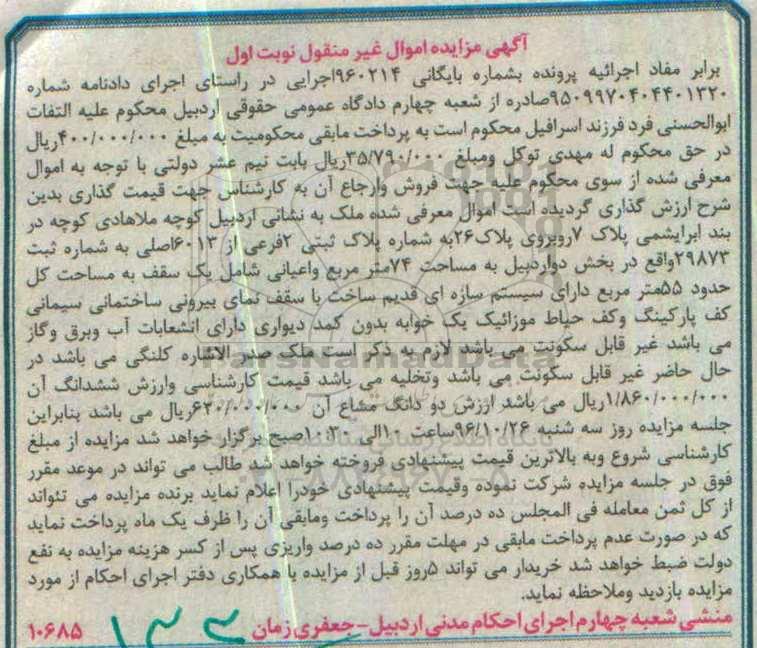 آگهی مزایده اموال غیر منقول نوبت اول
برابر مفاد اجرائیه پرونده بشماره بایگانی ۹۶۰۲۱۴اجرایی در راستای اجرای دادنامه شماره
۹۵۰۹۹۷۰۴۰۴۴۰۱۳۲۰صادره از شعبه چهارم دادگاه عمومی حقوقی اردبیل محکوم علیه التفات
ابوالحسنی فرد فرزند اسرافیل محکوم است به پرداخت مابقی محکومیت به مبلغ ۴۰۰/۰۰۰/۰۰۰ریال
در حق محکوم له مهدی توکل ومبلغ ۳۵/۷۹۰/۰۰۰ریال بابت نیم عشر دولتی با توجه به اموال
معرفی شده از سوی محکوم علیه جهت فروش وارجاع آن به کارشناس جهت قیمت گذاری بدین
شرح ارزش گذاری گردیده است اموال معرفی شده ملک به نشانی اردبیل کوچه ملاهادی کوچه در
بند ابرایشمی پلاک ۷روبروی پلاک۲۶به شماره پلاک ثبتی ۲فرعی از ۶۰۱۳اصلی به شماره ثبت
۲۹۸۷۳واقع در بخش دواردبیل به مساحت ۷۴متر مربع واعیانی شامل یک سقف به مساحت کل
حدود ۵۵متر مربع دارای سیستم سازه ای قدیم ساخت با سقف نمای بیرونی ساختمانی سیمانی
کف پارکینگ وکف حیاط موزائیک یک خوابه بدون کمد دیواری دارای انشعابات آب وبرق وگاز
می باشد غیر قابل سکونت می باشد لازم به ذکر است ملک صدر الاشاره کلنگی می باشد در
حال حاضر غیر قابل سکونت می باشد وتخلیه می باشد قیمت کارشناسی وارزش ششدانگ آن
۱/۸۶۰/۰۰۰/۰۰۰ریال می باشد ارزش دو دانگ مشاع آن ۶۲۰/۰۰۰/۰۰۰ریال می باشد بنابراین
جلسه مزایده روز سه شنبه ۹۶/۱۰/۲۶ساعت ۱۰الی ۱۰:۳۰صبح برگزار خواهد شد مزایده از مبلغ
کارشناسی شروع وبه بالاترین قیمت پیشنهادی فروخته خواهد شد طالب می تواند در موعد مقرر
فوق در جلسه مزایده شرکت نموده وقیمت پیشنهادی خودرا اعلام نماید برنده مزایده می تئواند
از کل ثمن معامله فی المجلس ده درصد آن را پرداخت ومابقی آن را ظرف یک ماه پرداخت نماید
که در صورت عدم پرداخت مابقی در مهلت مقرر ده درصد واریزی پس از کسر هزینه مزایده به نفع
دولت ضبط خواهد شد خریدار می تواند ۵روز قبل از مزایده با همکاری دفتر اجرای احکام از مورد
مزایده بازدید وملاحظه نماید.
منشی شعبه چهارم اجرای احکام مدنی اردبیل-جعفری زمان
۱۰۶۸۵
ParsNamadData